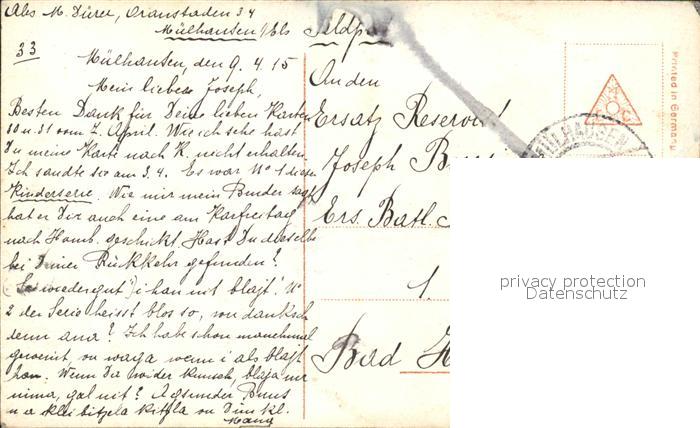 Abs M. Dürer, Oranstaden 34
Mülhausen i/Els
33
Mülhausen, den 9.4.15
Mein lieber Joseph,
Besten Dank für Deine lieben Karten
30 u. 31 vom 7. April. Wie ich sehe hast
Du meine Karte nach K. nicht erhalten
Ich sandte sie am 3.4. Es war No 1 dieser
Kinderserie. Wie mir mein Bruder sagt
hat er Dir auch eine am Karfreitag
nach Homb. geschikt. Hast Du dieselbe
bei Deiner Rückkehr gefunden?
"Sei wiedergut i han nit blajt". No
2 der Serie heisst blos so, vu danksch
denn ana? Ich habe schon manchmal
, vu waga wenn i als blajt
han. Wenn Du wider kunsch, blaja mr
nimma, gal nit?
u a klei bitzela kitzla vu Dim kl.
Feldpost
An den
Ersatz Reservist
Joseph
Ers. Batl.
1.
Bad
MÜLHAUSEN
Printed in Germany
privacy protection
Datenschutz